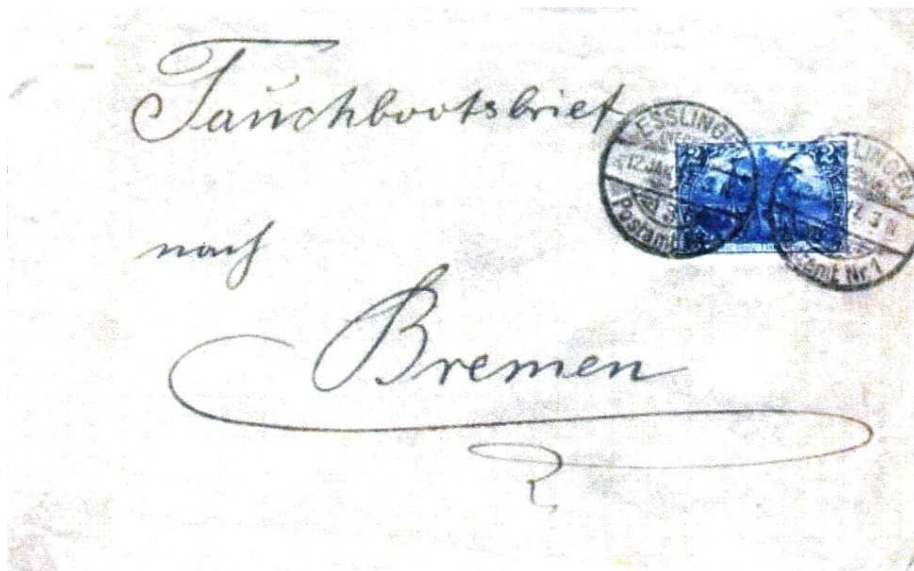 Tauchbootsbrief
nach
Bremen
ESSLINGEN
12 JAN
Postamt Nr. 1
2
2
LINGEN
3 N
amt Nr. 1